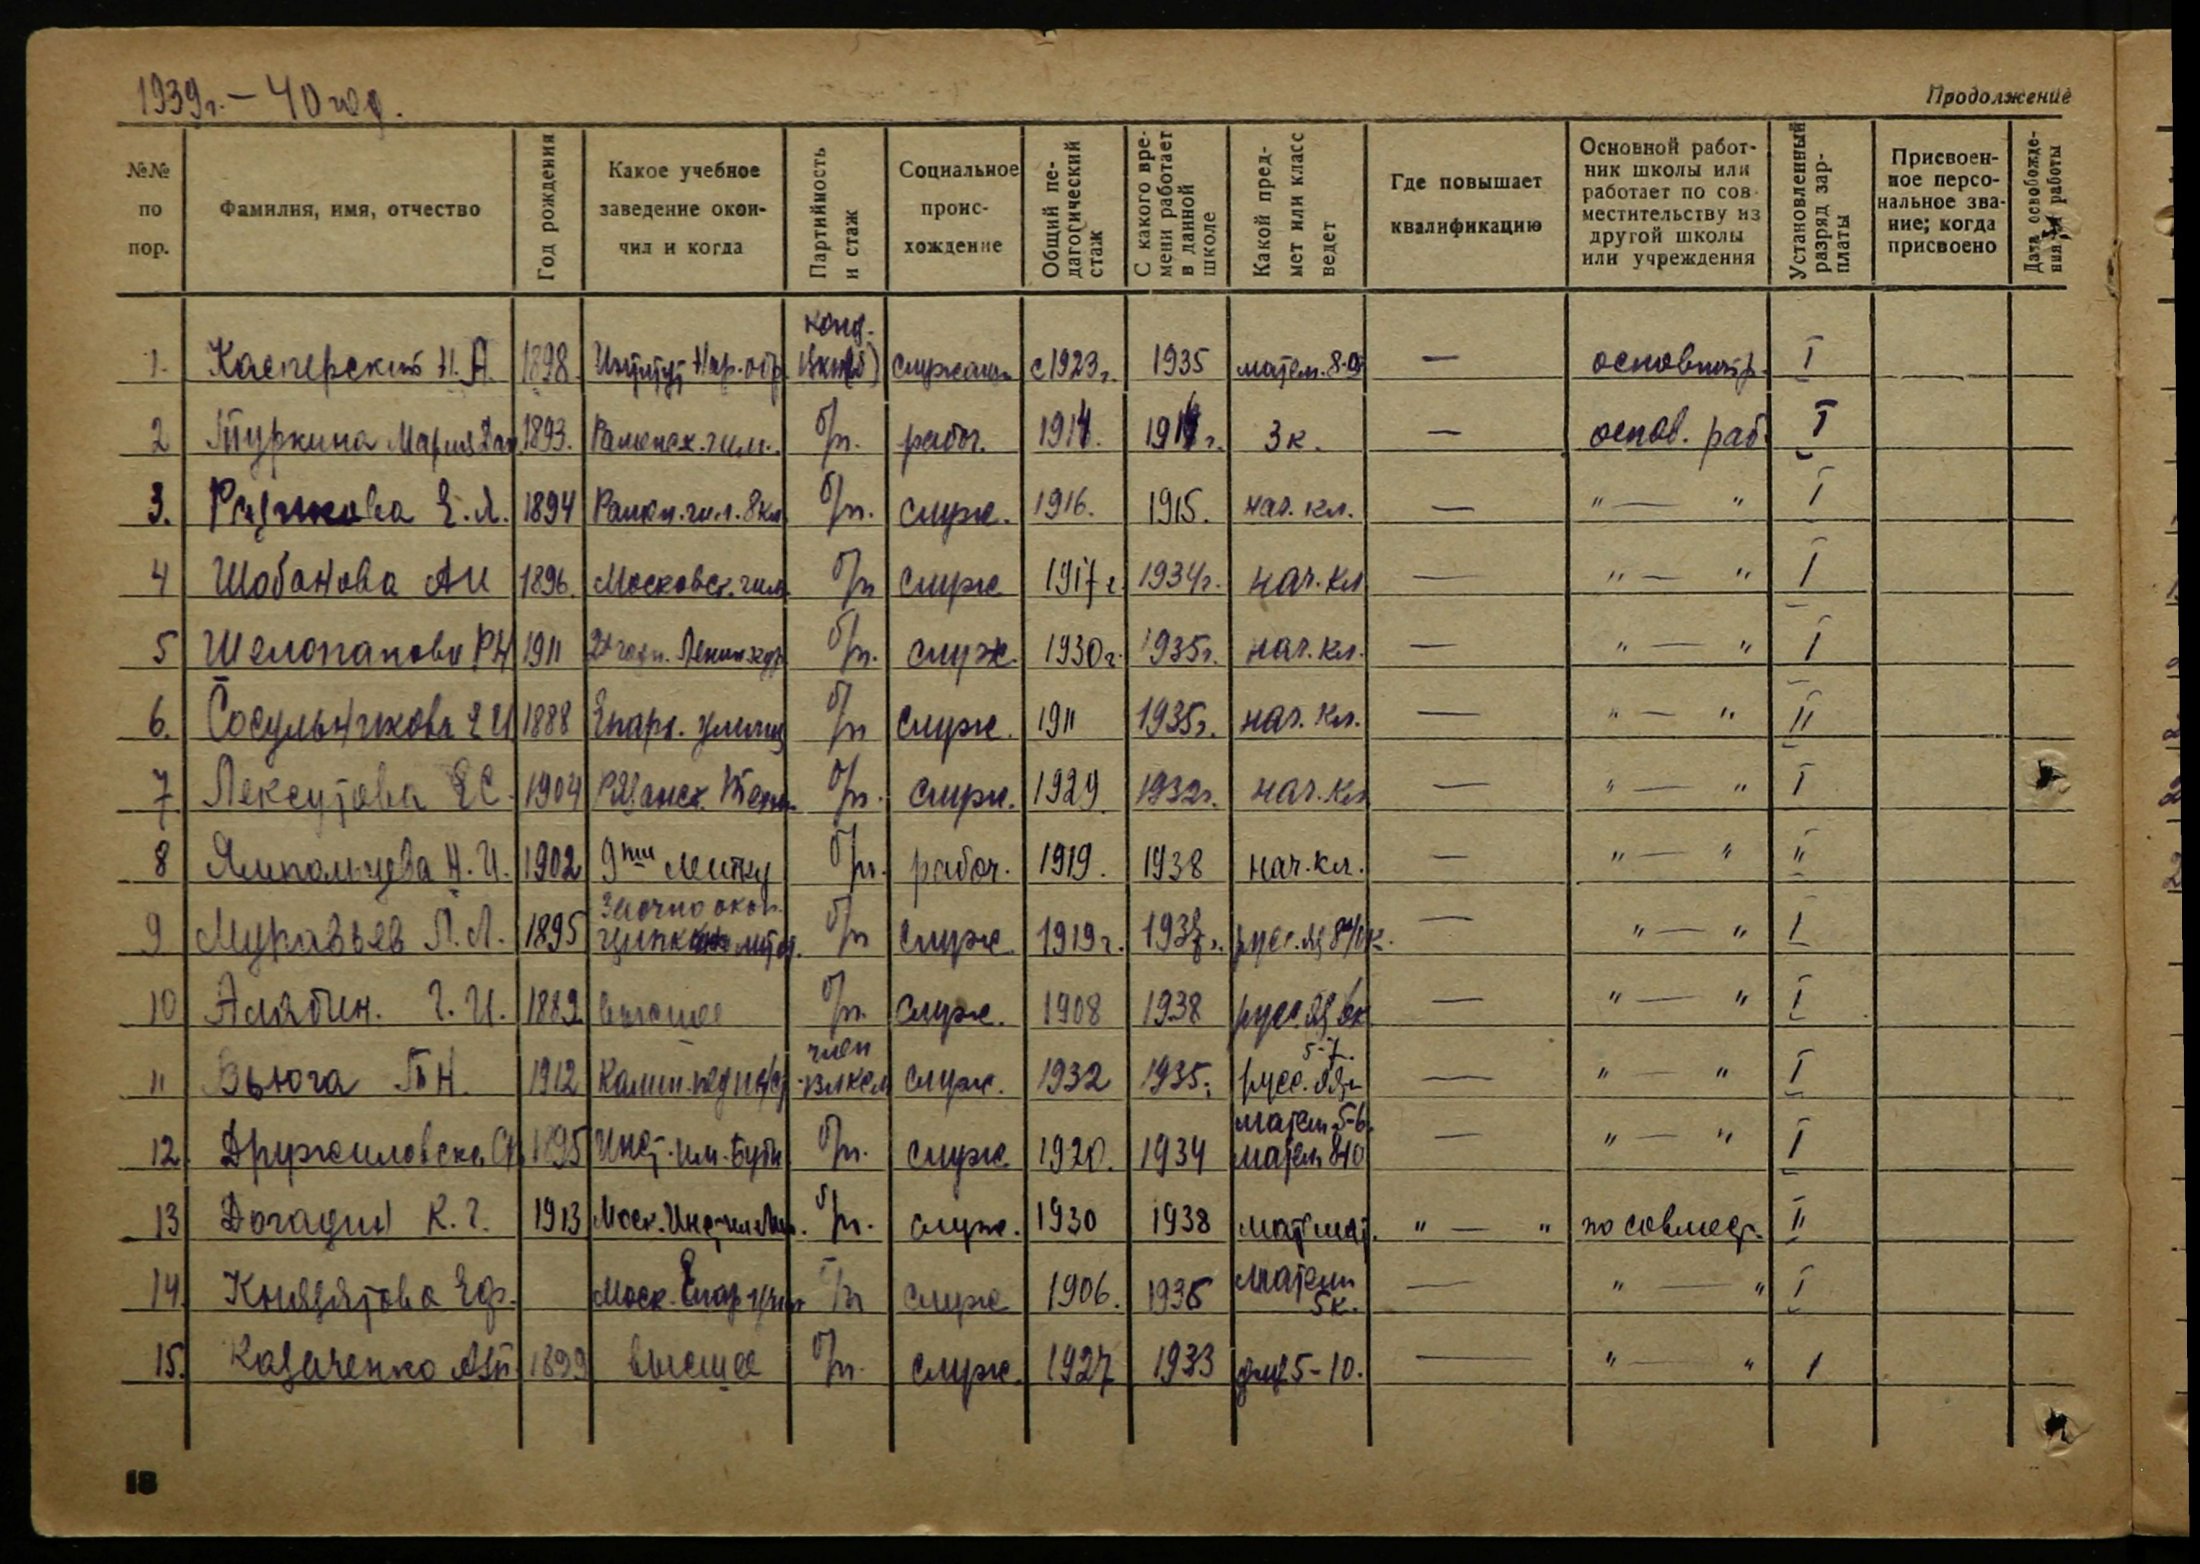 1939г. – 40 год.
Продолжение
№№ по пор.
Фамилия, имя, отчество
Год рождения
Какое учебное заведение окончил и когда
Партийность и стаж
Социальное происхождение
Общий педагогический стаж
С какого времени работает в данной школе
Какой предмет или класс ведет
Где повышает квалификацию
Основной работник школы или работает по совместительству из другой школы или учреждения
Установленный разряд зарплаты
Присвоенное персональное звание; когда присвоено
Дата освобождения работы
1. Касперский Н.А. 1898 Институт Нар. обр. канд. служащ. с 1923г. 1935 матем. 8-9 — основной р. I
2 Туркина Мария 1893. гим. б/п. рабоч. 1914. г. 3 к. — основ. раб. I
3. Е.Л. 1894 8 кл б/п. служ. 1916. 1915. нач. кл. — " — " I
4 Шабанова А И 1896. Московск. гим. б/п служ 1917 г. 1934г. нач. кл — " — " I
5 Шелопанова РН 1911 б/п. служ. 1930г. 1935г. нач. кл. — " — " I
6. Сосульникова Е И 1888 Епарх. училищ б/п служ. 1911 1935г. нач. кл. — " — " II
7 Лексутова Е С. 1904 Рязанск. б/п. служ. 1929 1932г. нач. кл — " — " I
8 Ямпольцева Н. И. 1902 9 б/п. рабоч. 1919. 1938 нач. кл. — " — " "
9 Муравьев Л. Л. 1895 Заочно окон. б/п служ 1919 г. рус. яз 8 к. — " — " I
10 Алябин. Г. И. 1889 высшее б/п. служ. 1908 1938 рус. яз — " — " I
11 Вьюга П Н. 1912 Калин. пед инст член ВЛКСМ служ. 1932 1935г 5-7. рус. яз — " — " I
12 1895 Инст. им. Бубн б/п. служ 1920. 1934 матем 5-6. матем 8-10 — " — " I
13 Догадин К. Г. 1913 Моск. Инст. б/п. служ. 1930 1938 " — " по совмест. II
14. Князятова Моск. Епар б/п служ 1906. матем 5к. — " — " I
15. Казаченко 1899 высшее б/п. служ. 1927 1933 физ 5-10. — " — " I
18